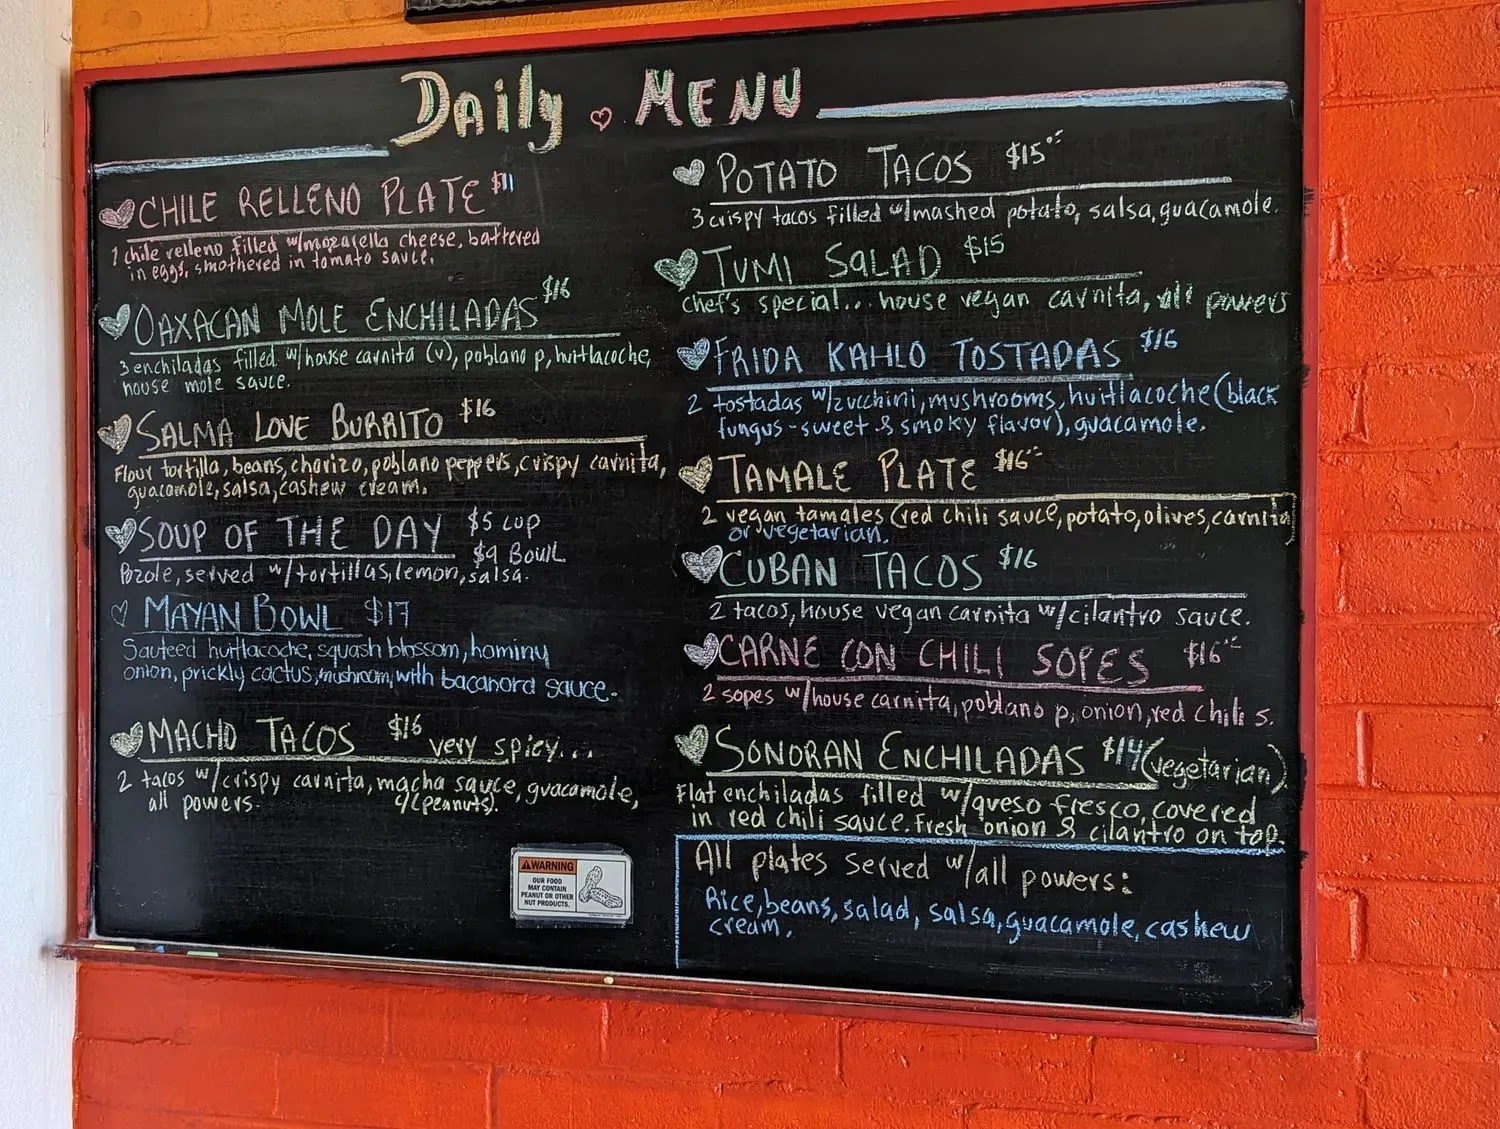 Daily MENU
CHILE RELLENO PLATE $11
1 chile relleno filled w/mozarella cheese, battered
in eggs, smothered in tomato sauce.
OAXACAN MOLE ENCHILADAS $16
3 enchiladas filled w/house carnita (v), poblano p, huitlacoche,
house mole sauce.
SALMA LOVE BURRITO $16
Flour tortilla, beans, chorizo, poblano peppers, crispy carnita,
guacamole, salsa, cashew cream.
SOUP OF THE DAY $5 cup
$9 BOWL
Pozole, served w/tortillas, lemon, salsa.
MAYAN BOWL $17
Sauteed huitlacoche, squash blossom, hominy
onion, prickly cactus, mushroom, with bacanord sauce.
MACHO TACOS $16 very spicy...
2 tacos w/crispy carnita, macha sauce, guacamole,
all powers. (peanuts).
WARNING
OUR FOOD
MAY CONTAIN
PEANUT OR OTHER
NUT PRODUCTS.
POTATO TACOS $15
3 crispy tacos filled w/mashed potato, salsa, guacamole.
TUMI SALAD $15
Chef's special... house vegan carnita, all powers
FRIDA KAHLO TOSTADAS $16
2 tostadas w/zucchini, mushrooms, huitlacoche (black
fungus-sweet & smoky flavor), guacamole.
TAMALE PLATE $16
2 vegan tamales (red chili sauce, potato, olives, carnita)
or vegetarian.
CUBAN TACOS $16
2 tacos, house vegan carnita w/cilantro sauce.
CARNE CON CHILI SOPES $16
2 sopes w/house carnita, poblano p, onion, red chili s.
SONORAN ENCHILADAS $14 (vegetarian)
Flat enchiladas filled w/queso fresco, covered
in red chili sauce. Fresh onion & cilantro on top.
All plates served w/all powers:
Rice, beans, salad, salsa, guacamole, cashew
cream.